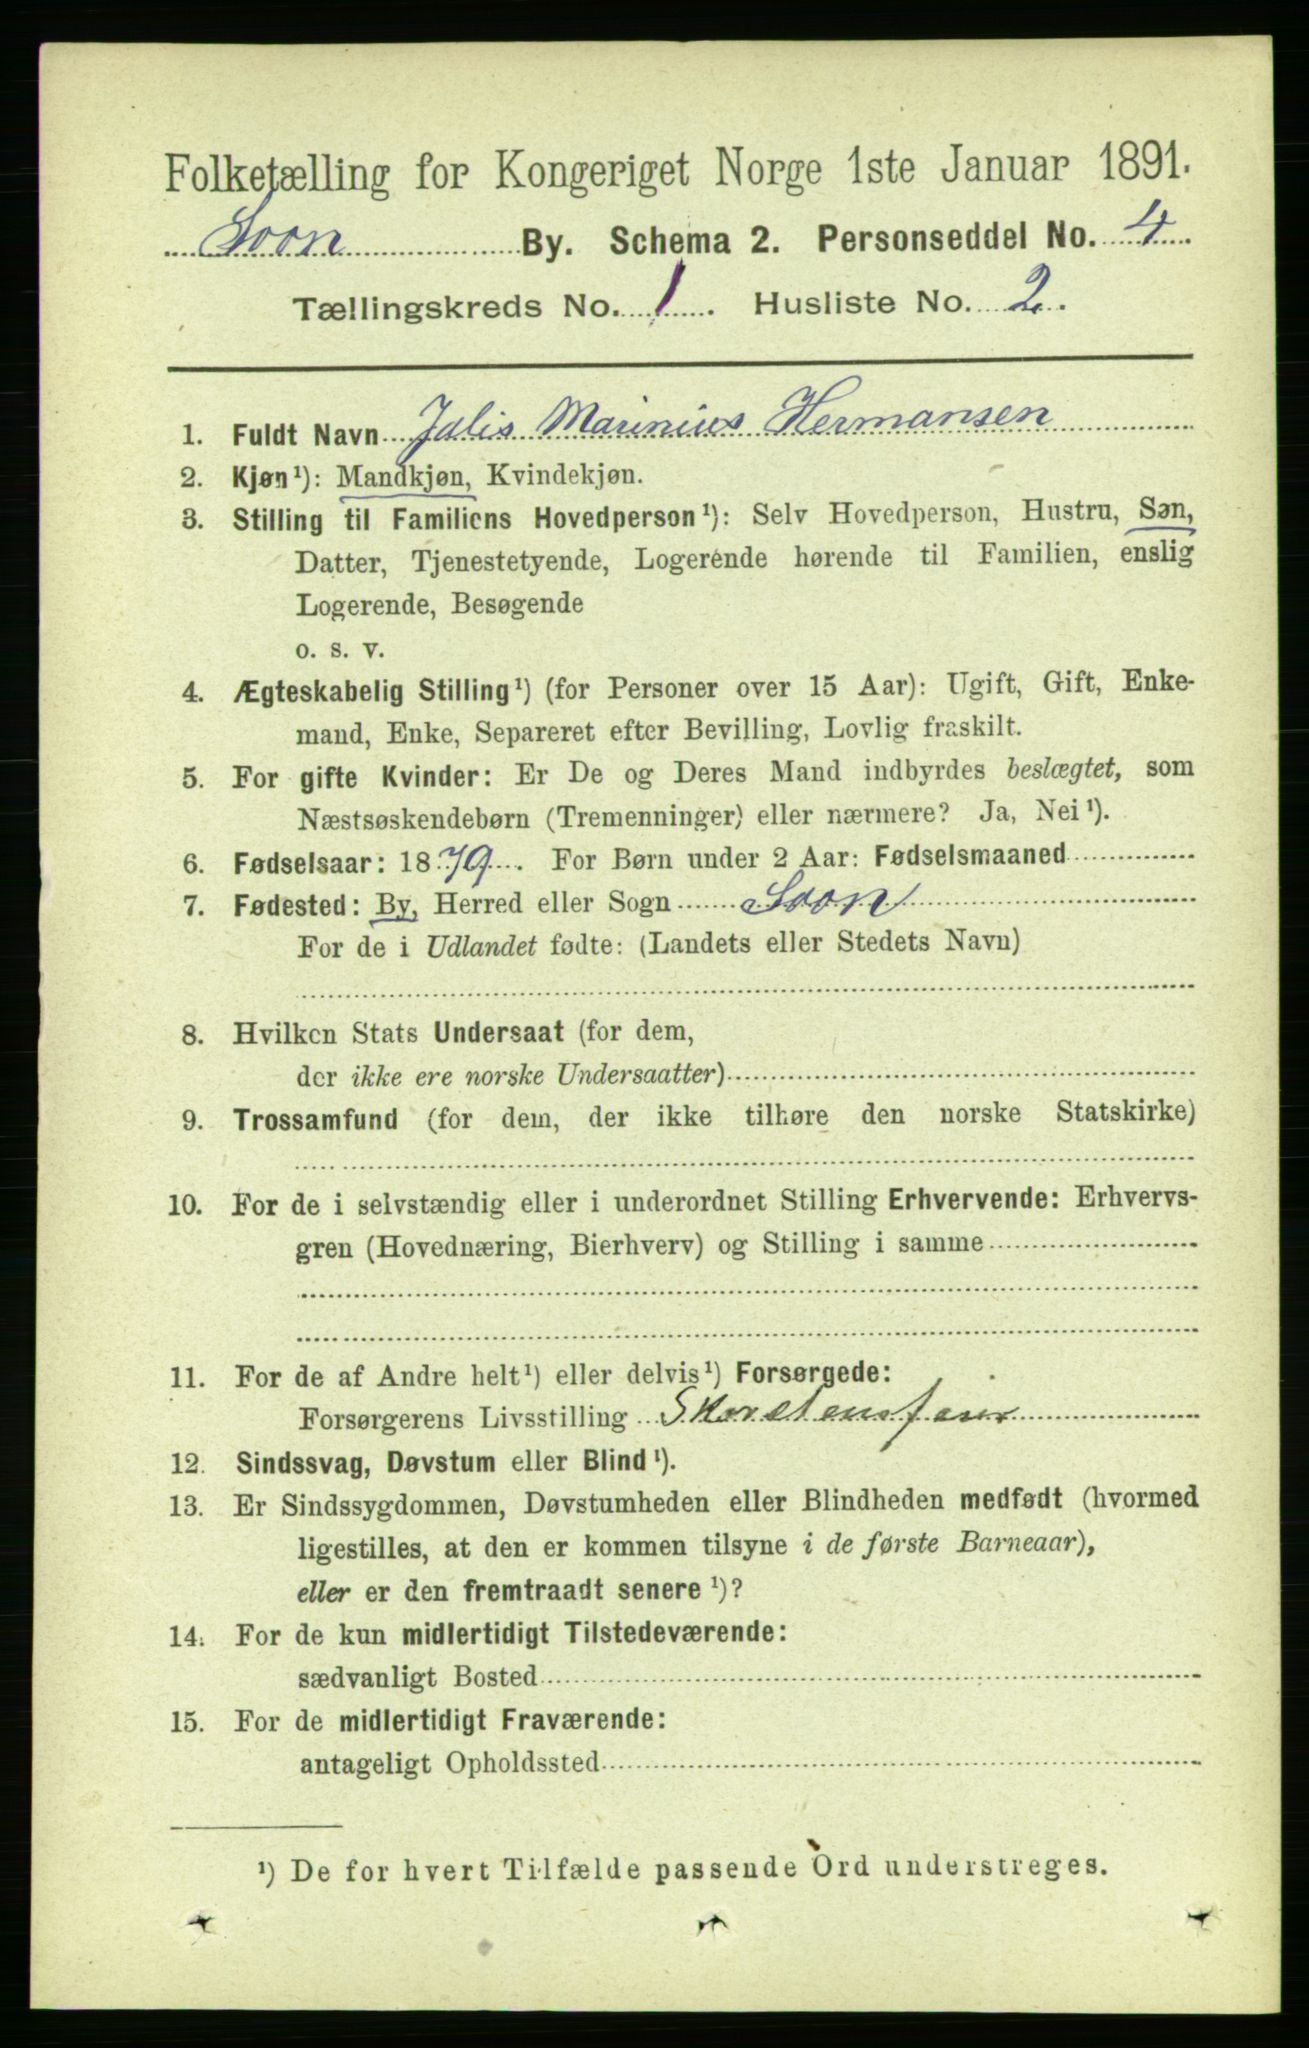 Folketælling for Kongeriget Norge 1ste Januar 1891.
Soon By. Schema 2. Personseddel No. 4
Tællingskreds No. 1. Husliste No. 2.
1. Fuldt Navn Jalis Marinius Hermansen
2. Kjøn ¹): Mandkjøn, Kvindekjøn.
3. Stilling til Familiens Hovedperson ¹): Selv Hovedperson, Hustru, Søn,
Datter, Tjenestetyende, Logerende hørende til Familien, enslig
Logerende, Besøgende
o. s. v.
4. Ægteskabelig Stilling ¹) (for Personer over 15 Aar): Ugift, Gift, Enke-
mand, Enke, Separeret efter Bevilling, Lovlig fraskilt.
5. For gifte Kvinder: Er De og Deres Mand indbyrdes beslægtet, som
Næstsøskendebørn (Tremenninger) eller nærmere? Ja, Nei ¹).
6. Fødselsaar: 1879. For Børn under 2 Aar: Fødselsmaaned
7. Fødested: By, Herred eller Sogn Soon
For de i Udlandet fødte: (Landets eller Stedets Navn)
8. Hvilken Stats Undersaat (for dem,
der ikke ere norske Undersaatter)
9. Trossamfund (for dem, der ikke tilhøre den norske Statskirke)
10. For de i selvstændig eller i underordnet Stilling Erhvervende: Erhvervs-
gren (Hovednæring, Bierhverv) og Stilling i samme
11. For de af Andre helt ¹) eller delvis ¹) Forsørgede:
Forsørgerens Livsstilling Skorstensfeier
12. Sindssvag, Døvstum eller Blind ¹).
13. Er Sindssygdommen, Døvstumheden eller Blindheden medfødt (hvormed
ligestilles, at den er kommen tilsyne i de første Barneaar),
eller er den fremtraadt senere ¹)?
14. For de kun midlertidigt Tilstedeværende:
sædvanligt Bosted
15. For de midlertidigt Fraværende:
antageligt Opholdssted
¹) De for hvert Tilfælde passende Ord understreges.